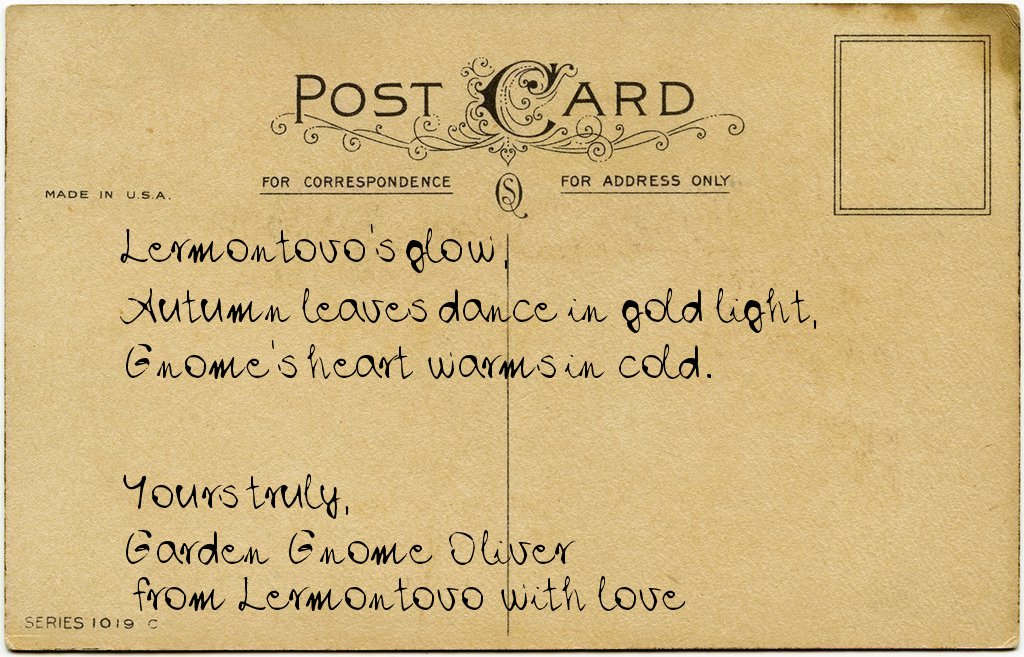 POST CARD
FOR CORRESPONDENCE
FOR ADDRESS ONLY
MADE IN U.S.A.
Lermontovo's glow,
Autumn leaves dance in gold light,
Gnome's heart warms in cold.
Yours truly,
Garden Gnome Oliver
from Lermontovo with love
SERIES 1019 C